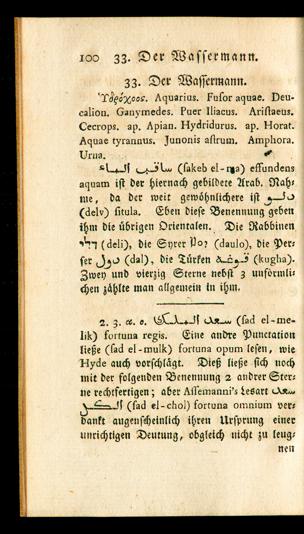 100 33. Der Wassermann.
33. Der Wassermann.
Ὑδρόχοος. Aquarius. Fusor aquae. Deu-
calion. Ganymedes. Puer Iliacus. Aristaeus.
Cecrops. ap. Apian. Hydridurus. ap. Horat.
Aquae tyrannus. Junonis astrum. Amphora.
Urna.
ساقب الماء (sakeb el-ma) effundens
aquam ist der hiernach gebildete Arab. Nah-
me, da der weit gewöhnlichere ist دلو
(delv) situla. Eben diese Benennung geben
ihm die übrigen Orientalen. Die Rabbinen
דלי (deli), die Syrer (daulo), die Per-
ser دول (dal), die Türken قوغه (kugha).
Zwey und vierzig Sterne nebst 3 unförmli-
chen zählte man allgemein in ihm.
2. 3. α. ο. سعد الملك (sad el-me-
lik) fortuna regis. Eine andre Punctation
ließe (sad el-mulk) fortuna opum lesen, wie
Hyde auch vorschlägt. Dieß ließe sich noch
mit der folgenden Benennung 2 andrer Ster-
ne rechtfertigen; aber Assemanni's Lesart سعد
الكل (sad el-chol) fortuna omnium ver-
dankt augenscheinlich ihren Ursprung einer
unrichtigen Deutung, obgleich nicht zu leug-
nen